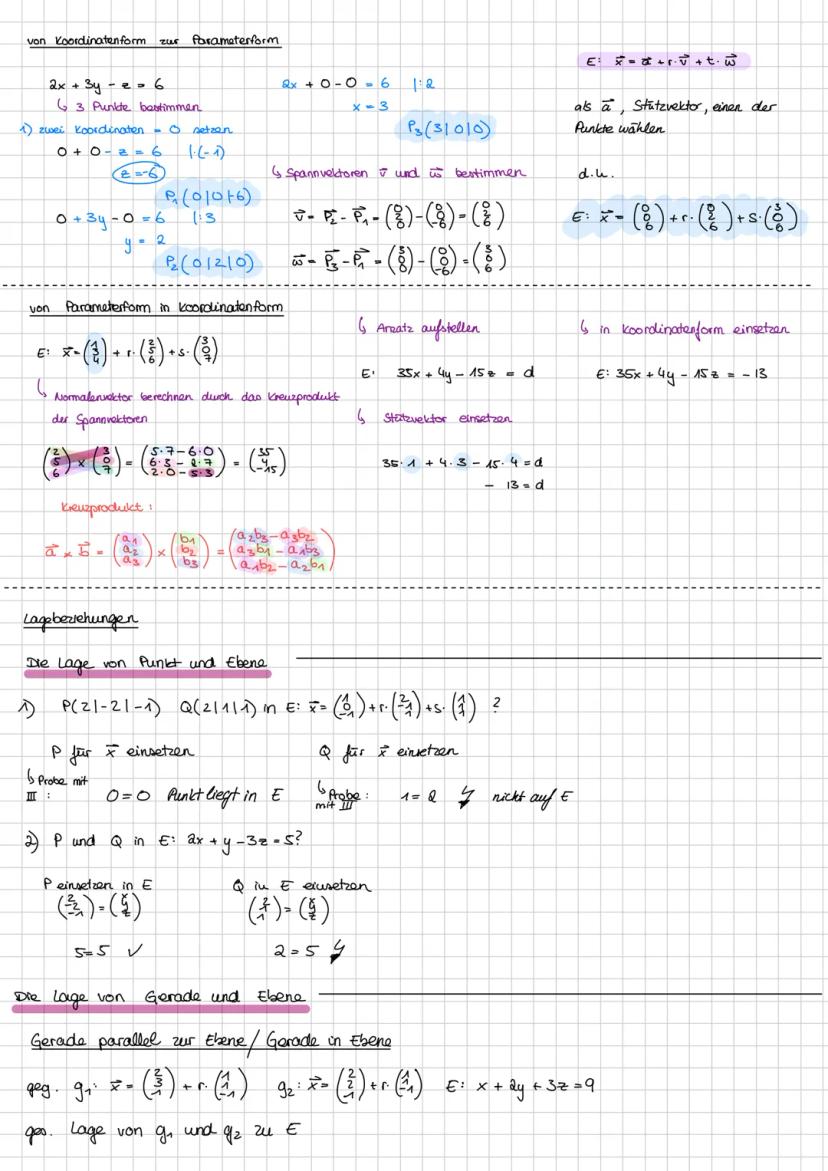 von Koordinatenform zur Parameterform
2x + 3y - z = 6
↳ 3 Punkte bestimmen
1) zwei Koordinaten = 0 setzen
0 + 0 - z = 6 |·(-1)
z = -6
P₁(0|0|-6)
0 + 3y - 0 = 6 |:3
y = 2
P₂(0|2|0)
2x + 0 - 0 = 6 |:2
x = 3
P₃(3|0|0)
↳ Spannvektoren v⃗ und w⃗ bestimmen
v⃗ = P⃗₂ - P⃗₁ = (0 2 0) - (0 0 -6) = (0 2 6)
w⃗ = P⃗₃ - P⃗₁ = (3 0 0) - (0 0 -6) = (3 0 6)
E: x⃗ = a⃗ + r·v⃗ + t·w⃗
als a⃗, Stützvektor, einen der
Punkte wählen
d.h.
E: x⃗ = (0 0 6) + r·(0 2 6) + s·(3 0 6)
von Parameterform in Koordinatenform
E: x⃗ = (1 3 4) + r·(2 5 6) + s·(3 0 7)
↳ Normalenvektor berechnen durch das Kreuzprodukt
der Spannvektoren
(2 5 6) × (3 0 7) = (5·7-6·0 6·3-2·7 2·0-5·3) = (35 4 -15)
Kreuzprodukt:
a⃗ × b⃗ = (a₁ a₂ a₃) × (b₁ b₂ b₃) = (a₂b₃-a₃b₂ a₃b₁-a₁b₃ a₁b₂-a₂b₁)
↳ Ansatz aufstellen
E: 35x + 4y - 15z = d
↳ Stützvektor einsetzen
35·1 + 4·3 - 15·4 = d
- 13 = d
↳ in Koordinatenform einsetzen
E: 35x + 4y - 15z = -13
Lagebeziehungen
Die Lage von Punkt und Ebene
1) P(2|-2|-1) Q(2|1|1) in E: x⃗ = (1 0 -1) + r·(2 -1 1) + s·(1 1 1) ?
P für x⃗ einsetzen
↳ Probe mit
III: 0=0 Punkt liegt in E
Q für x⃗ einsetzen
↳ Probe:
mit III 1=2 ↯ nicht auf E
2) P und Q in E: 2x + y - 3z = 5?
P einsetzen in E
(2 -2 -1) = (x y z)
5=5 ✓
Q in E einsetzen
(2 1 1) = (x y z)
2=5 ↯
Die Lage von Gerade und Ebene
Gerade parallel zur Ebene / Gerade in Ebene
geg. g₁: x⃗ = (2 3 1) + r·(1 1 -1) g₂: x⃗ = (2 2 1) + r·(1 1 -1) E: x + 2y + 3z = 9
ges. Lage von g₁ und g₂ zu E